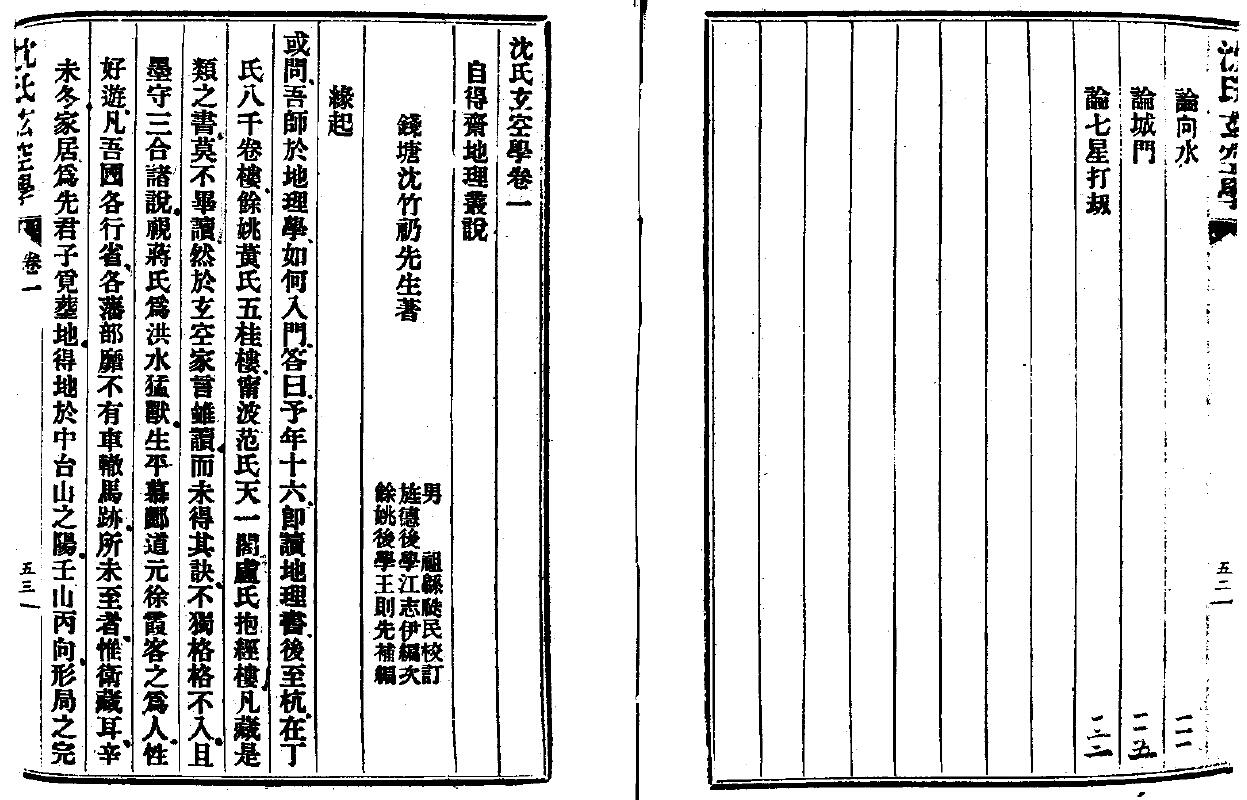 沈氏玄空學
五二
論向水
二一一
論城門
二一五
論七星打刼
二二二
沈氏玄空學卷一
自得齋地理叢說
錢塘沈竹礽先生著
男　祖緜瓞民校訂
旌德後學江志伊編次
餘姚後學王則先補編
緣起
或問吾師於地理學如何入門答曰予年十六即讀地理書後至杭在丁
氏八千卷樓餘姚黃氏五桂樓甯波范氏天一閣盧氏抱經樓凡藏是
類之書莫不畢讀然於玄空家言雖讀而未得其訣不獨格格不入且
墨守三合諸說視蔣氏爲洪水猛獸生平慕酈道元徐霞客之爲人性
好遊凡吾國各行省各藩部靡不有車轍馬跡所未至者惟衛藏耳辛
未冬家居爲先君子覓葬地得地於中台山之陽壬山丙向形局之完
沈氏玄空學
卷一
五三